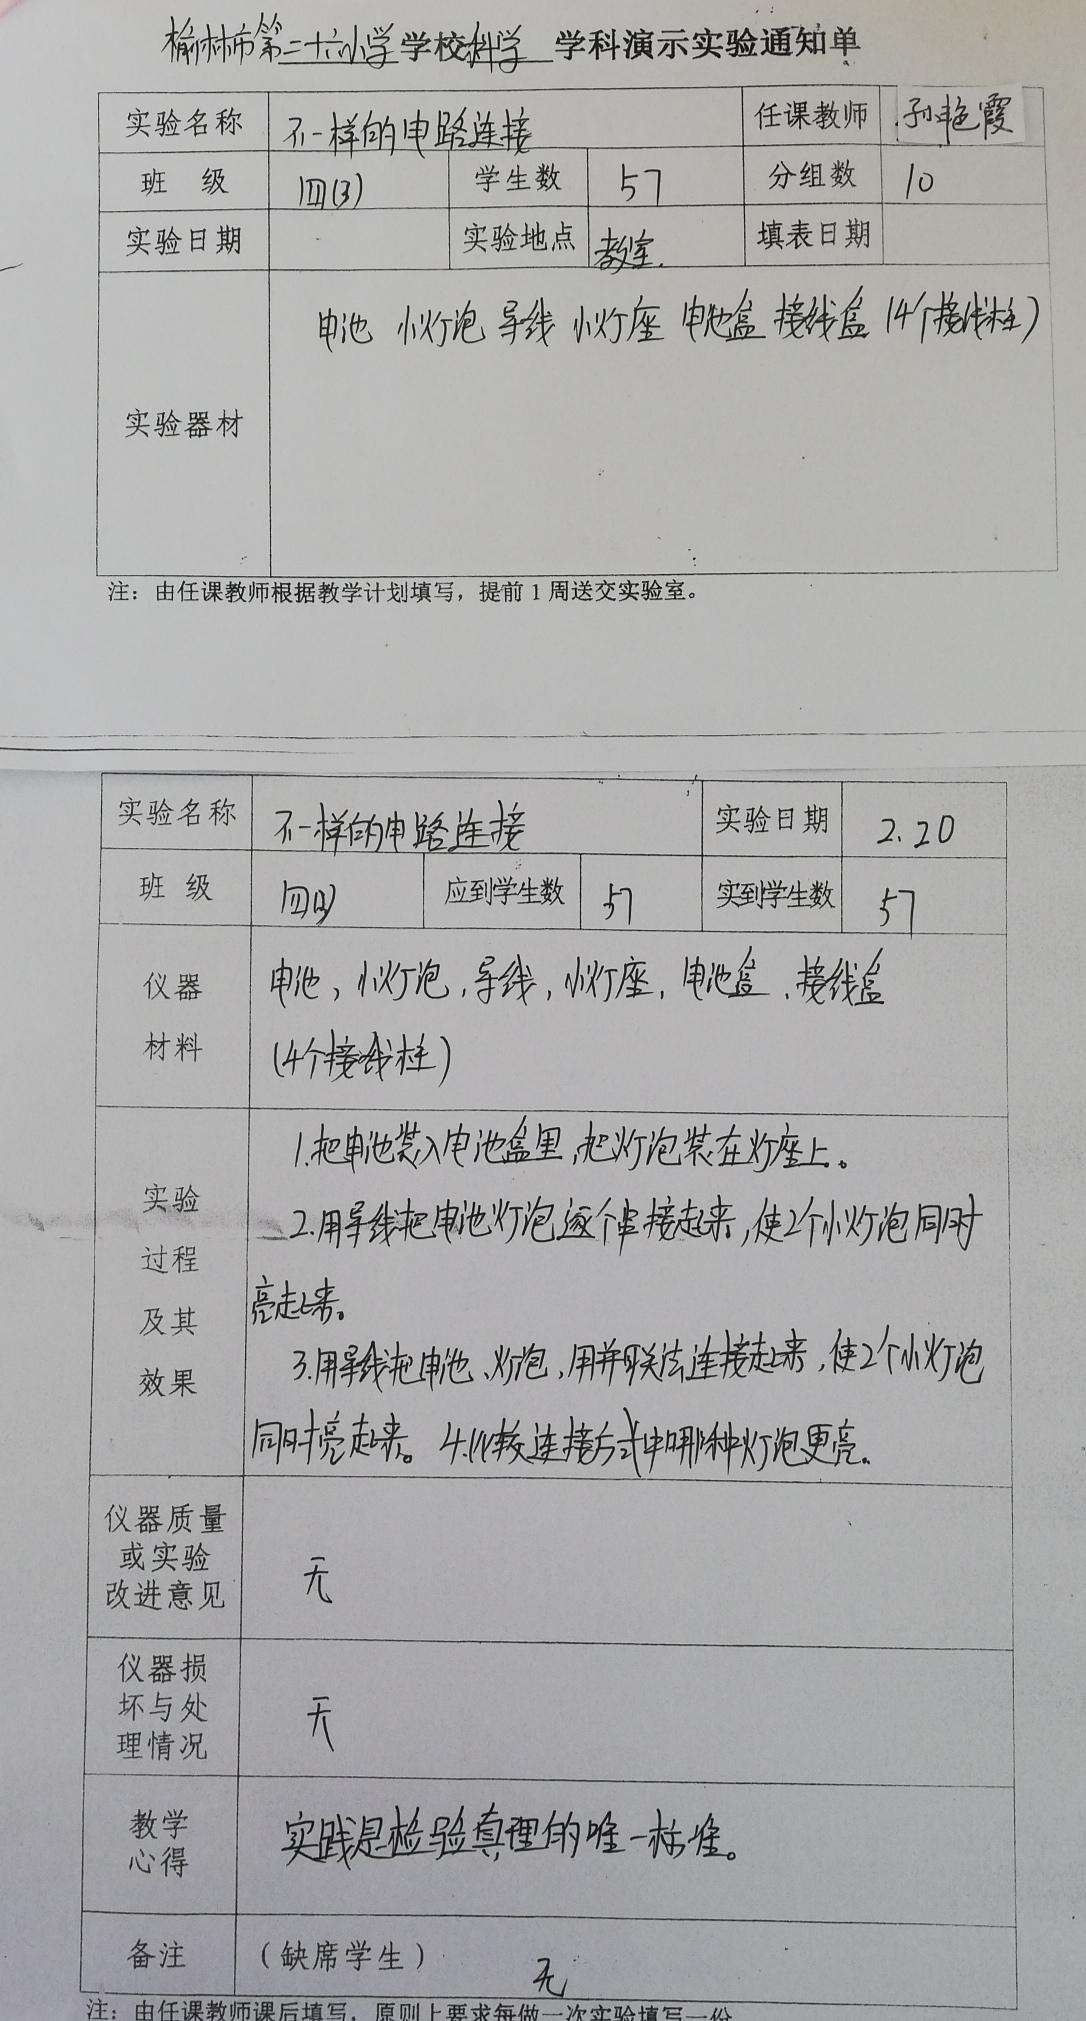 榆林市第二十六小学学校科学 学科演示实验通知单
实验名称 不一样的电路连接 任课教师 孙艳霞
班 级 四(3) 学生数 57 分组数 10
实验日期 实验地点 教室. 填表日期
电池 小灯泡 导线 小灯座 电池盒 接线盒(4个接线柱)
实验器材
注：由任课教师根据教学计划填写，提前1周送交实验室。
实验名称 不一样的电路连接 实验日期 2.20
班 级 四(3) 应到学生数 57 实到学生数 57
仪器
材料
电池，小灯泡，导线，小灯座，电池盒、接线盒
(4个接线柱)
实验
过程
及其
效果
1.把电池装入电池盒里，把灯泡装在灯座上。
2.用导线把电池灯泡逐个串接起来，使2个小灯泡同时
亮起来。
3.用导线把电池、灯泡，用并联法连接起来，使2个小灯泡
同时亮起来。4.比较连接方式中哪种灯泡更亮.
仪器质量
或实验
改进意见
无
仪器损
坏与处
理情况
无
教学
心得
实践是检验真理的唯一标准。
备注 （缺席学生） 无
注：由任课教师课后填写，原则上要求每做一次实验填写一份